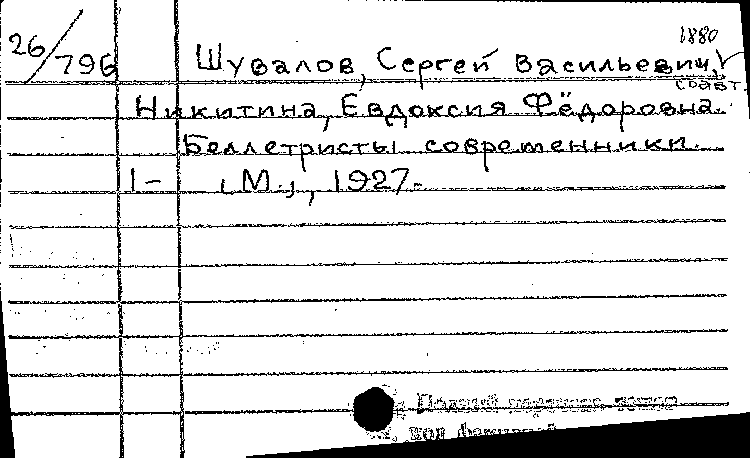 1880
26/796 Шувалов, Сергей Васильевич,
соавт.
Никитина, Евдоксия Фёдоровна.
Беллетристы современники.
1- (М.), 1927-